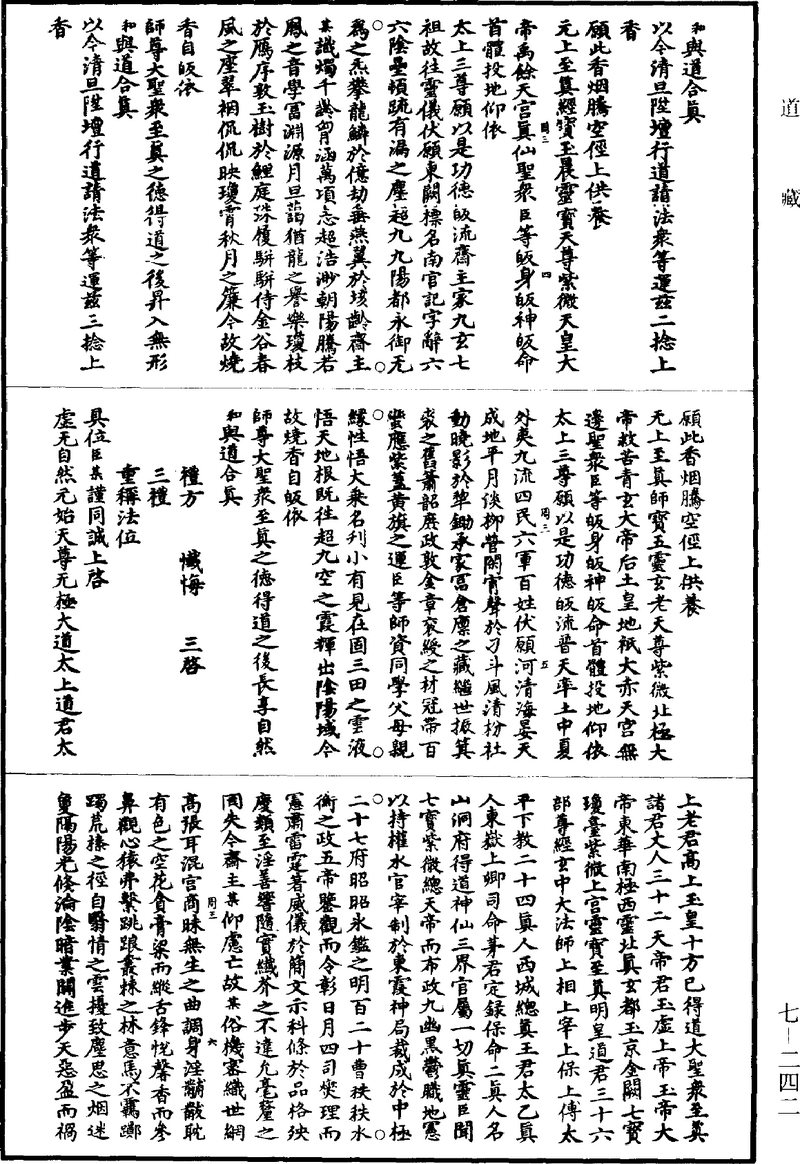 道藏
和與道合真
以今清旦陞壇行道請法衆等運茲二捻上
香
願此香烟騰空徑上供養
元上至真經寶玉晨靈寶天尊紫微天皇大
帝禹餘天宮真仙聖衆臣等皈身皈神皈命
首體投地仰依
太上三尊願以是功德皈流齋主家九玄七
祖故往靈儀伏願東闕標名南宫記字辭六
六陰壘頓踈有漏之塵超九九陽都永御无
爲之炁攀龍鱗於億劫垂燕翼於垓齡齋主
某識燭千齡胷涵萬頃志超浩渺朝陽騰若
鳳之音學冨淵源月旦藹猶龍之譽樂瓊枝
於鴈序敎玉樹於鯉庭珠履駢駢侍金谷春
風之座翠裀侃侃映瓊霄秋月之簾今故燒
香自皈依
師尊大聖衆至真之德得道之後昇入無形
和與道合真
以今清旦陞壇行道請法衆等運茲三捻上
香
願此香烟騰空徑上供養
无上至真師寶五靈玄老天尊紫微北極大
帝救苦青玄大帝后土皇地祇大赤天宮無
邊聖衆臣等皈身皈神皈命首體投地仰依
太上三尊願以是功德皈流普天率土中夏
外夷九流四民六軍百姓伏願河清海晏天
成地平月淡柳營閑宵聲於刁斗風清枌社
動曉影於犂鋤承家冨倉廪之藏繼世振箕
裘之舊簫韶廣政敦金章衮綬之材冠帶百
蠻應紫蓋黄旗之運臣等師資同學父母親
緣性悟大乗名刋小有見在固三田之雲液
悟天地根既往超九空之霞輝出陰陽域今
故燒香自皈依
師尊大聖衆至真之德得道之後長享自然
和與道合真
禮方 懺悔 三啓
三禮
重稱法位
具位臣某謹同誠上啓
虚无自然元始天尊元極大道太上道君太
上老君髙上玉皇十方已得道大聖衆至真
諸君丈人三十二天帝君玉虚上帝玉帝大
帝東華南極西靈北真玄都玉京金闕七寳
瓊臺紫微上宫靈寶至真明皇道君三十六
部尊經玄中大法師上相上宰上保上傅太
平下敎二十四真人西城總真王君太乙真
人東嶽上卿司命茅君定録保命二真人名
山洞府得道神仙三界官屬一切真靈臣聞
七寳紫微總天帝而布政九幽黑欝職地憲
以持權水官宰制於東霞神局裁成於中極
二十七府昭昭氷鑑之明百二十曹秩秩水
衡之政五帝鑒觀而令彰日月四司爕理而
憲肅雷霆著威儀於簡文示科條於品格殃
慶類至淫善響隨實纖芥之不違允毫釐之
罔失今齋主某仰慮亡故某俗機塞織世網
髙張耳混宫商昧無生之曲調身淫黼黻耽
有色之空花貪膏梁而縱舌鋒悅馨香而參
鼻觀心猿弗繫跳踉叢棘之林意馬不羈躑
躅荒榛之徑自翳情之雲擾致塵思之烟迷
隻隔陽光倐淪陰暗業關進步天惡盈而禍
七—二四二